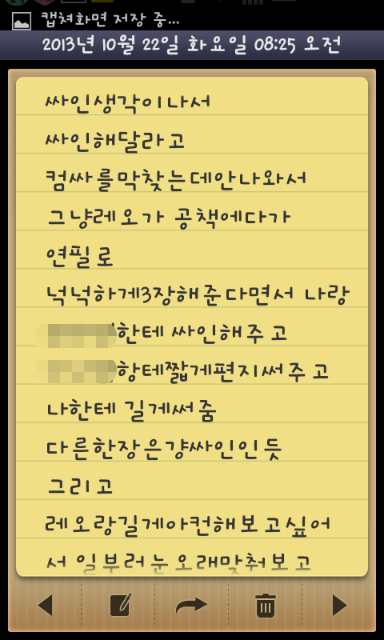 캡쳐화면 저장 중...
2013년 10월 22일 화요일 08:25 오전
싸인생각이나서
싸인해달라고
컴싸를막찾는데안나와서
그냥레오가 공책에다가
연필로
넉넉하게3장해준다면서 나랑
한테 싸인해주고
항테짧게편지써주고
나한테 길게써줌
다른한장은걍싸인인듯
그리고
레오랑길게아컨해보고싶어
서 일부러눈오래맞춰보고